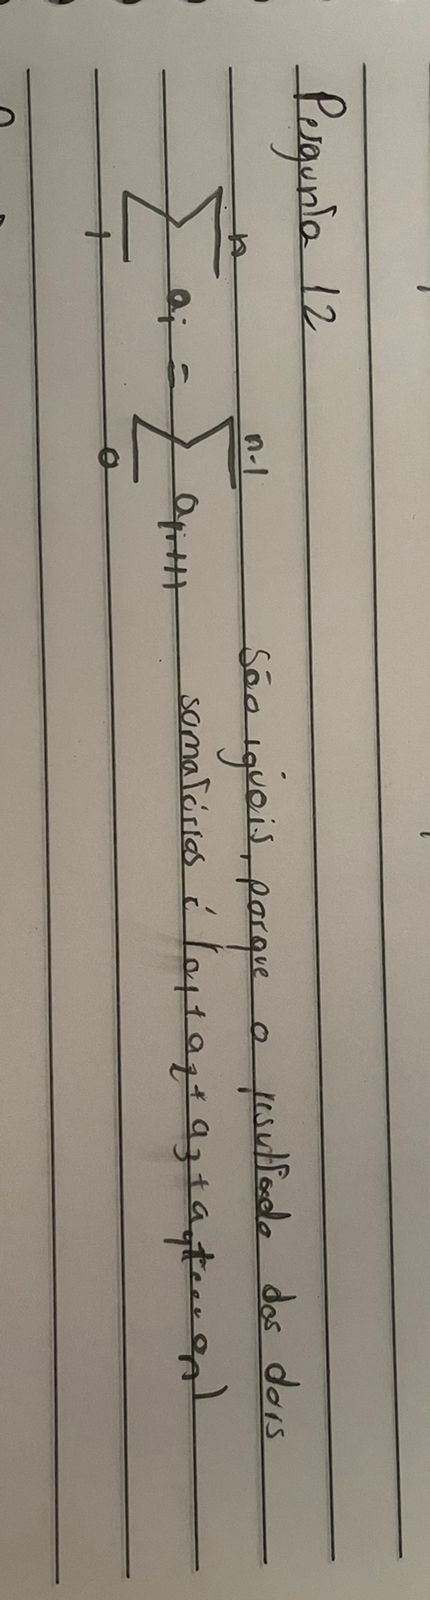 Pergunta 12
n n-1
∑ ai = ∑ a(i+1)
1 0
São iguais, porque o resultado dos dois
somatórios é (a1 + a2 + a3 + a4 + ... an)